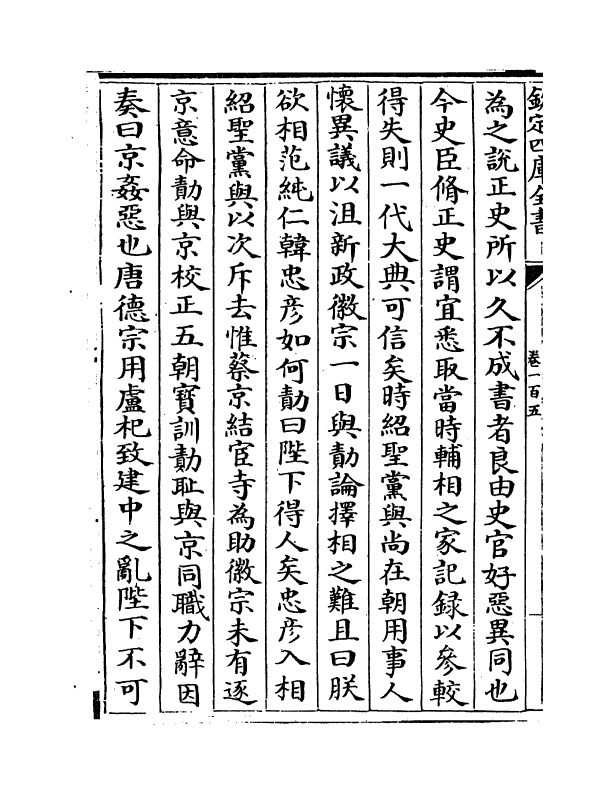 欽定四庫全書
卷一百五
為之說正史所以久不成書者良由史官好惡異同也
今史臣脩正史謂宜悉取當時輔相之家記録以參較
得失則一代大典可信矣時紹聖黨與尚在朝用事人
懷異議以沮新政徽宗一日與勣論擇相之難且曰朕
欲相范純仁韓忠彦如何勣曰陛下得人矣忠彦入相
紹聖黨與以次斥去惟蔡京結宦寺為助徽宗未有逐
京意命勣與京校正五朝寳訓勣耻與京同職力辭因
奏曰京姦惡也唐德宗用盧杞致建中之亂陛下不可